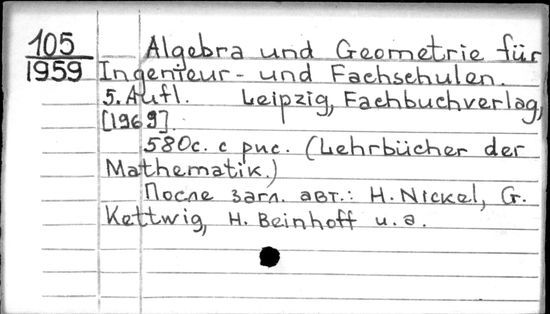 105 Algebra und Geometrie für
1959 Ingenieur- und Fachschulen.
5. Aufl. Leipzig, Fachbuchverlag,
[1969].
580с. с рис. (Lehrbücher der
Mathematik.)
После загл. авт.: H. Nickel, G.
Kettwig, H. Beinhoff u. a.